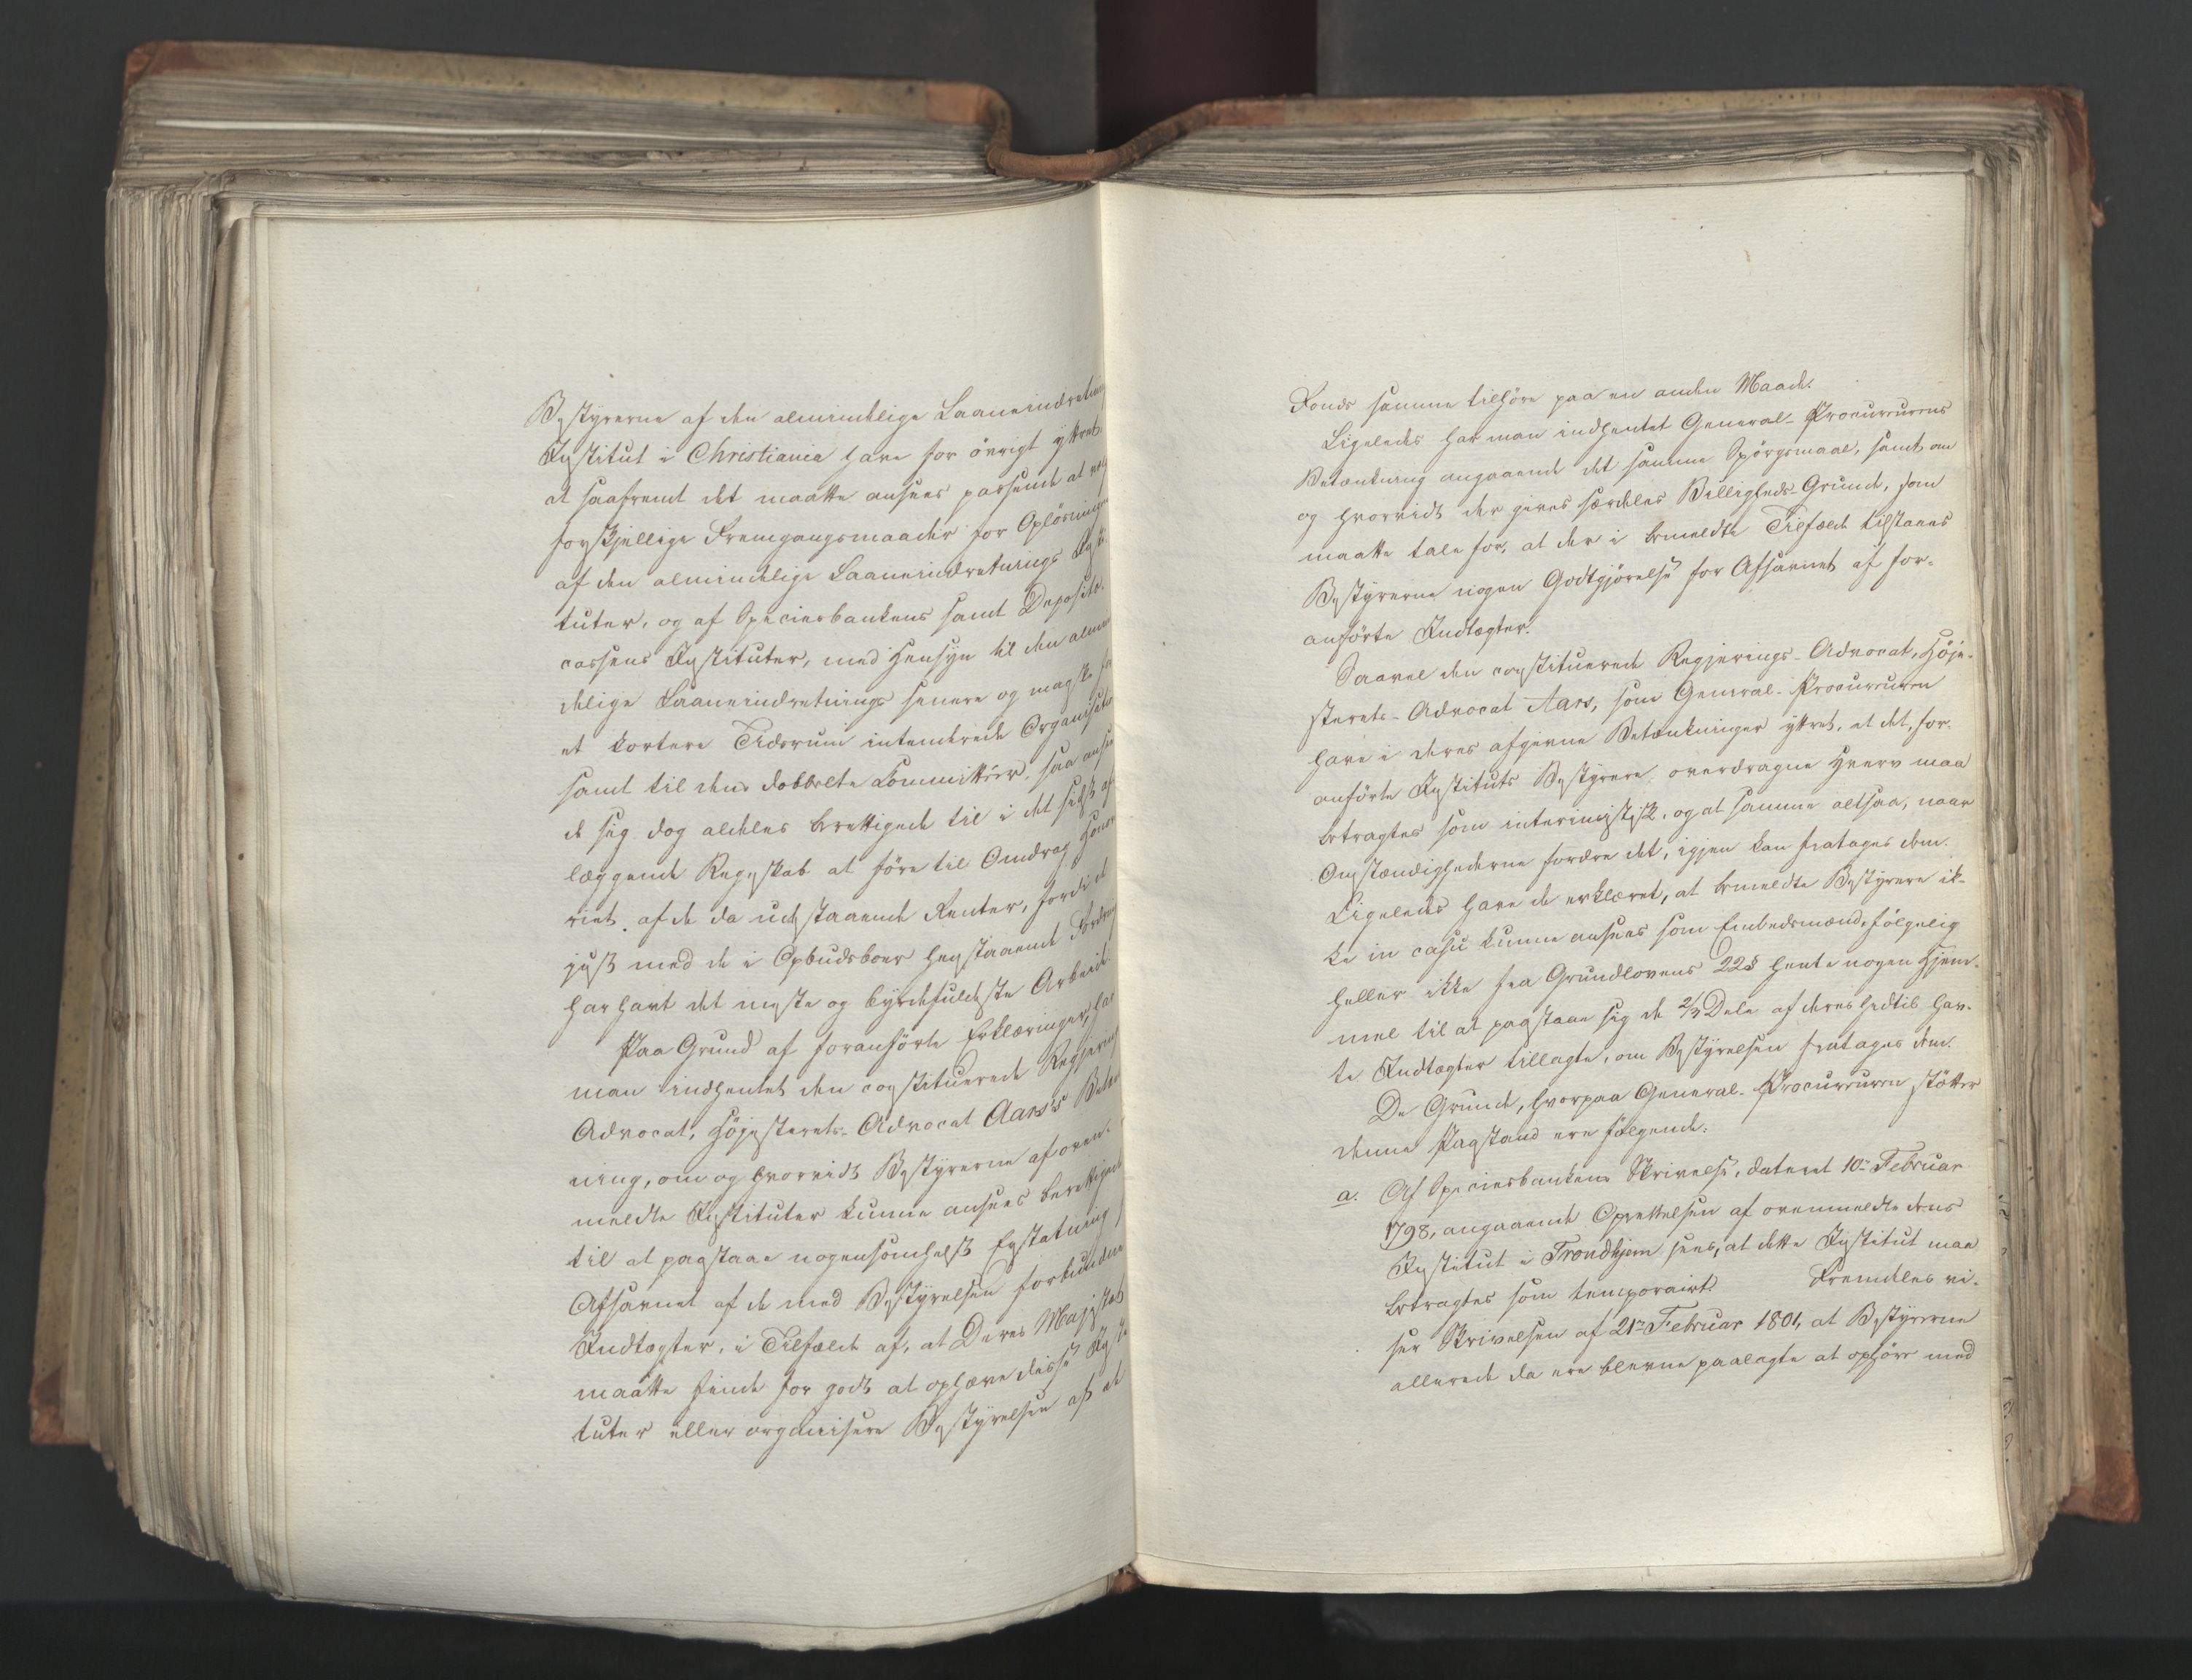 Bestyrerne af den almindelige Laaneindretnings
Institut i Christiania have for övrigt yttret
at saafremt det maatte ansees passende at
forskjellige Fremgangsmaader for Oplösningen
af den almindelige Laaneindretnings Insti-
tuter, og af Speciesbankens samt Deposito-
cassens Instituter, med Hensyn til den almin-
delige Laaneindretnings senere og
et kortere Tidsrum intenderede Organisation
samt til dens dobbelte Committéer, saa anser
de sig dog aldeles berettigede til i det sidst af-
læggende Regnskab at före til Omdrag Hono-
riet af de da udestaaende Renter, fordi de
just med de i Opbudsboer henstaaende Fordring
har havt det meste og byrdefuldeste Arbeide.
Paa Grund af foranförte Erklæringer, har
man indhentet den constituerede Regjerings
Advocat, Höjesterets-Advocat Aars's Betæn-
ning, om og hvorvidt Bestyrerne af oven-
meldte Instituter kunne ansees berettigede
til at paastaae nogensomhelst Erstatning
Afsavnet af de med Bestyrelsen forbundne
Indtægter, i Tilfælde af, at Deres Majestæt
maatte finde for godt at ophæve disse Insti-
tuter eller organisere Bestyrelsen af et
Fonds samme tilhöre paa en anden Maade.
Ligeledes har man indhentet General-Procureurens
Betænkning angaaende det samme Spörgsmaal, samt, om
og hvorvidt der gives særdeles Billigheds-Grunde, som
maatte tale for, at der i bemeldte Tilfælde tilstaaes
Bestyrerne nogen Godtgjörelse for Afsavnet af for-
anförte Indtægter.
Saavel den constituerede Regjerings-Advocat, Höje-
sterets-Advocat Aars, som General-Procureuren
have i deres afgivne Betænkninger yttret, at det, for-
anförte Instituts Bestyrere overdragne Hverv maa
betragtes som interimistisk, og at samme altsaa, naar
Omstændighederne fordre det, igjen kan fratages dem.
Ligeledes have de erklæret, at bemeldte Bestyrere ik-
ke in casu kunne ansees som Embedsmænd, fölgelig
heller ikke fra Grundlovens 22§ hente nogen Hjem-
mel til at paastaae sig de 2/3 Dele af deres hidtil hav-
te Indtægter tillagte, om Bestyrelsen fratages dem.
De Grunde, hvorpaa General-Procureuren stötter
denne Paastand ere fölgende:
a. Af Speciesbankens Skrivelse, dateret 10de Februar
1798, angaaende Oprettelsen af ovenmeldte dens
Institut i Trondhjem sees, at dette Institut maa
betragtes som temporairt. Fremdeles vi-
ser Skrivelsen af 21de Februar 1801, at Bestyrerne
allerede da ere blevne paalagte at ophöre med